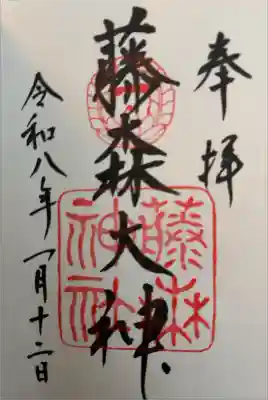 奉拝
藤森大神
藤森
神社
令和八年一月十二日